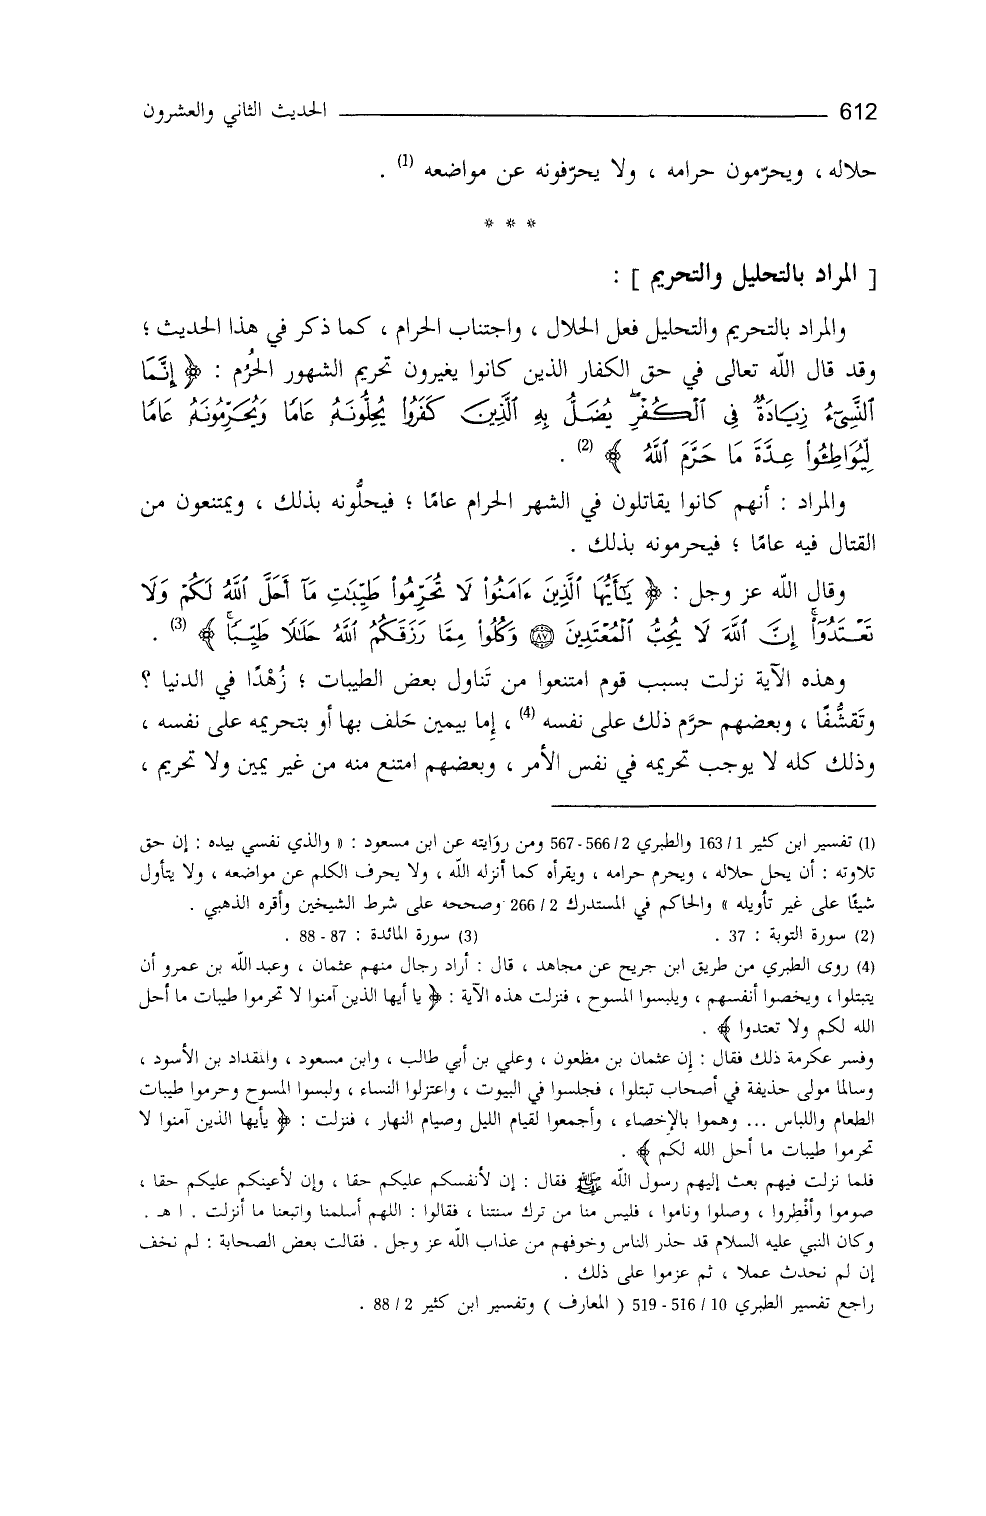 612 الحديث الثاني والعشرون
حلاله ، ويحرّمون حرامه ، ولا يحرّفونه عن مواضعه (1) .
* * *
[ المراد بالتحليل والتحريم ] :
والمراد بالتحريم والتحليل فعل الحلال ، واجتناب الحرام ، كما ذكر في هذا الحديث ؛
وقد قال الله تعالى في حق الكفار الذين كانوا يغيرون تحريم الشهور الحُرُم : ﴿ إِنَّمَا
ٱلنَّسِىٓءُ زِيَادَةٌ فِى ٱلْكُفْرِ ۖ يُضَلُّ بِهِ ٱلَّذِينَ كَفَرُوا۟ يُحِلُّونَهُۥ عَامًا وَيُحَرِّمُونَهُۥ عَامًا
لِّيُوَاطِـُٔوا۟ عِدَّةَ مَا حَرَّمَ ٱللَّهُ ﴾ (2) .
والمراد : أنهم كانوا يقاتلون في الشهر الحرام عامًا ؛ فيحلُّونه بذلك ، ويمتنعون من
القتال فيه عامًا ؛ فيحرمونه بذلك .
وقال الله عز وجل : ﴿ يَـٰٓأَيُّهَا ٱلَّذِينَ ءَامَنُوا۟ لَا تُحَرِّمُوا۟ طَيِّبَـٰتِ مَآ أَحَلَّ ٱللَّهُ لَكُمْ وَلَا
تَعْتَدُوٓا۟ ۚ إِنَّ ٱللَّهَ لَا يُحِبُّ ٱلْمُعْتَدِينَ ۝٨٧ وَكُلُوا۟ مِمَّا رَزَقَكُمُ ٱللَّهُ حَلَـٰلًا طَيِّبًا ۚ ﴾ (3) .
وهذه الآية نزلت بسبب قوم امتنعوا من تَناول بعض الطيبات ؛ زُهْدًا في الدنيا ؟
وتَقشُّفًا ، وبعضهم حرَّم ذلك على نفسه (4) ، إما بيمين حَلف بها أو بتحريمه على نفسه ،
وذلك كله لا يوجب تحريمه في نفس الأمر ، وبعضهم امتنع منه من غير يمين ولا تحريم ،
(1) تفسير ابن كثير 1 / 163 والطبري 2 / 566 - 567 ومن روَايته عن ابن مسعود : « والذي نفسي بيده : إن حق
تلاوته : أن يحل حلاله ، ويحرم حرامه ، ويقرأه كما أنزله الله ، ولا يحرف الكلم عن مواضعه ، ولا يتأول
شيئًا على غير تأويله » والحاكم في المستدرك 2 / 266 وصححه على شرط الشيخين وأقره الذهبي .
(2) سورة التوبة : 37 . (3) سورة المائدة : 87 - 88 .
(4) روى الطبري من طريق ابن جريج عن مجاهد ، قال : أراد رجال منهم عثمان ، وعبد الله بن عمرو أن
يتبتلوا ، ويخصوا أنفسهم ، ويلبسوا المسوح ، فنزلت هذه الآية : ﴿ يا أيها الذين آمنوا لا تحرموا طيبات ما أحل
الله لكم ولا تعتدوا ﴾ .
وفسر عكرمة ذلك فقال : إن عثمان بن مظعون ، وعلي بن أبي طالب ، وابن مسعود ، والمقداد بن الأسود ،
وسالما مولى حذيفة في أصحاب تبتلوا ، فجلسوا في البيوت ، واعتزلوا النساء ، ولبسوا المسوح وحرموا طيبات
الطعام واللباس ... وهموا بالإخصاء ، وأجمعوا لقيام الليل وصيام النهار ، فنزلت : ﴿ يأيها الذين آمنوا لا
تحرموا طيبات ما أحل الله لكم ﴾ .
فلما نزلت فيهم بعث إليهم رسول الله ﷺ فقال : إن لأنفسكم عليكم حقا ، وإن لأعينكم عليكم حقا ،
صوموا وأفْطِروا ، وصلوا وناموا ، فليس منا من ترك سنتنا ، فقالوا : اللهم أسلمنا واتبعنا ما أنزلت . ا هـ .
وكان النبي عليه السلام قد حذر الناس وخوفهم من عذاب الله عز وجل . فقالت بعض الصحابة : لم نخف
إن لم نحدث عملا ، ثم عزموا على ذلك .
راجع تفسير الطبري 10 / 516 - 519 ( المعارف ) وتفسير ابن كثير 2 / 88 .